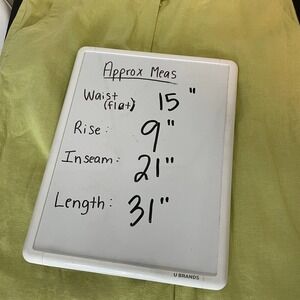 Approx Meas
Waist 15"
(flat)
Rise: 9"
Inseam: 21"
Length: 31"
U BRANDS